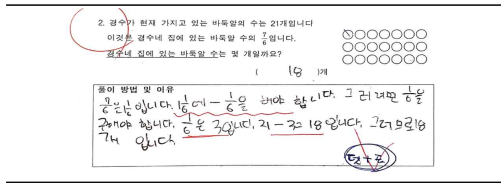 2. 경수가 현재 가지고 있는 바둑알의 수는 21개입니다
이것은 경수네 집에 있는 바둑알 수의 7/6입니다.
경수네 집에 있는 바둑알 수는 몇 개일까요?
( 18 )개
풀이 방법 및 이유
7/6은 1 1/6입니다. 1 1/6에 - 1/6을 해야 합니다. 그러려면 1/6을
구해야 합니다. 1/6은 3입니다. 21 - 3은 18입니다. 그러므로 18
개 입니다.